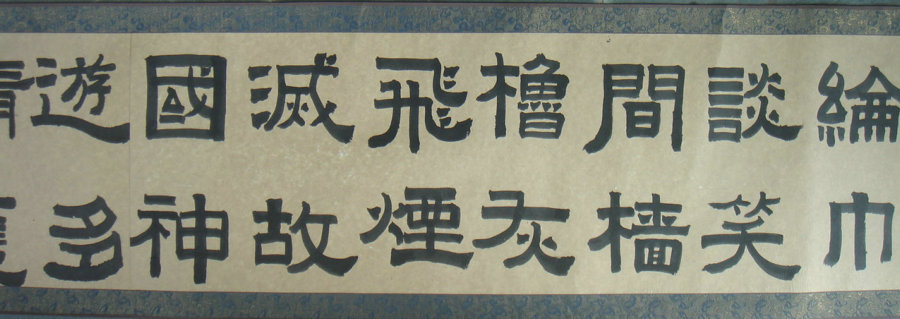 綸巾
談笑
間檣
櫓灰
飛煙
滅故
國神
遊多